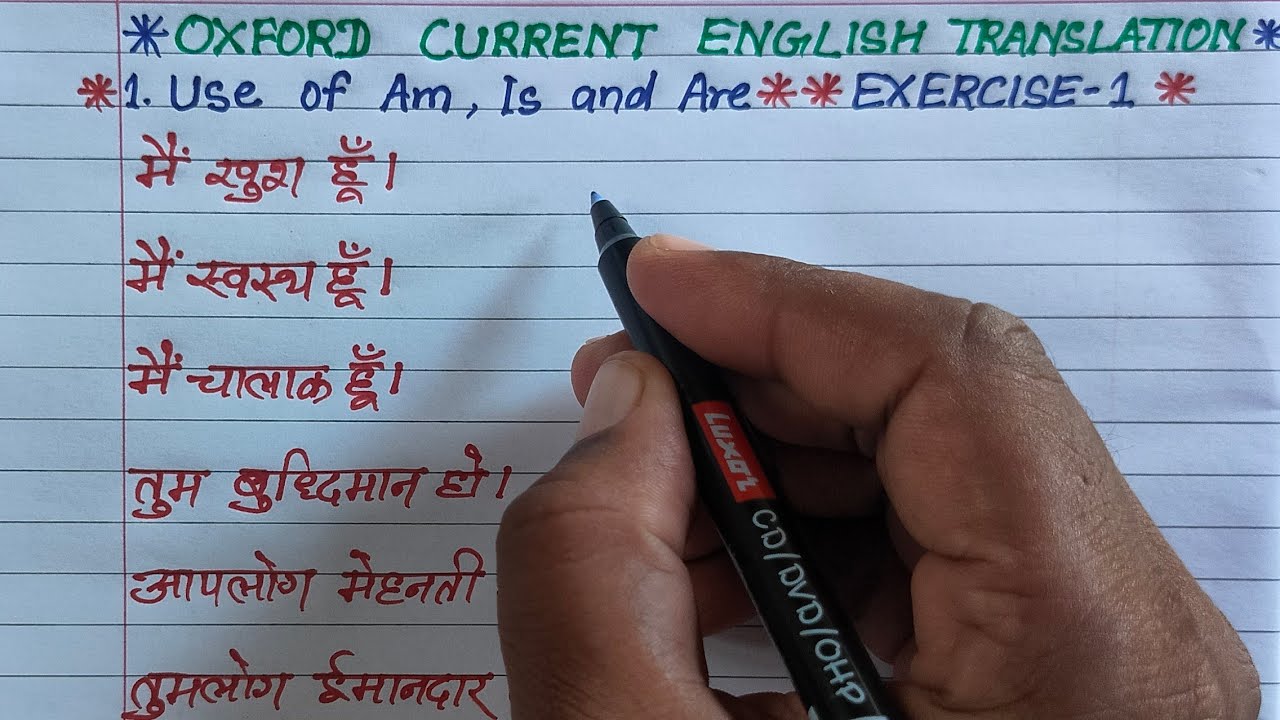 *OXFORD CURRENT ENGLISH TRANSLATION*
*1. Use of Am, Is and Are** EXERCISE-1 *
मैं खुश हूँ।
मैं स्वस्थ हूँ।
मैं चालाक हूँ।
तुम बुध्दिमान हो।
आपलोग मेहनती
तुमलोग ईमानदार
Luxor
CD/DVD/OHP